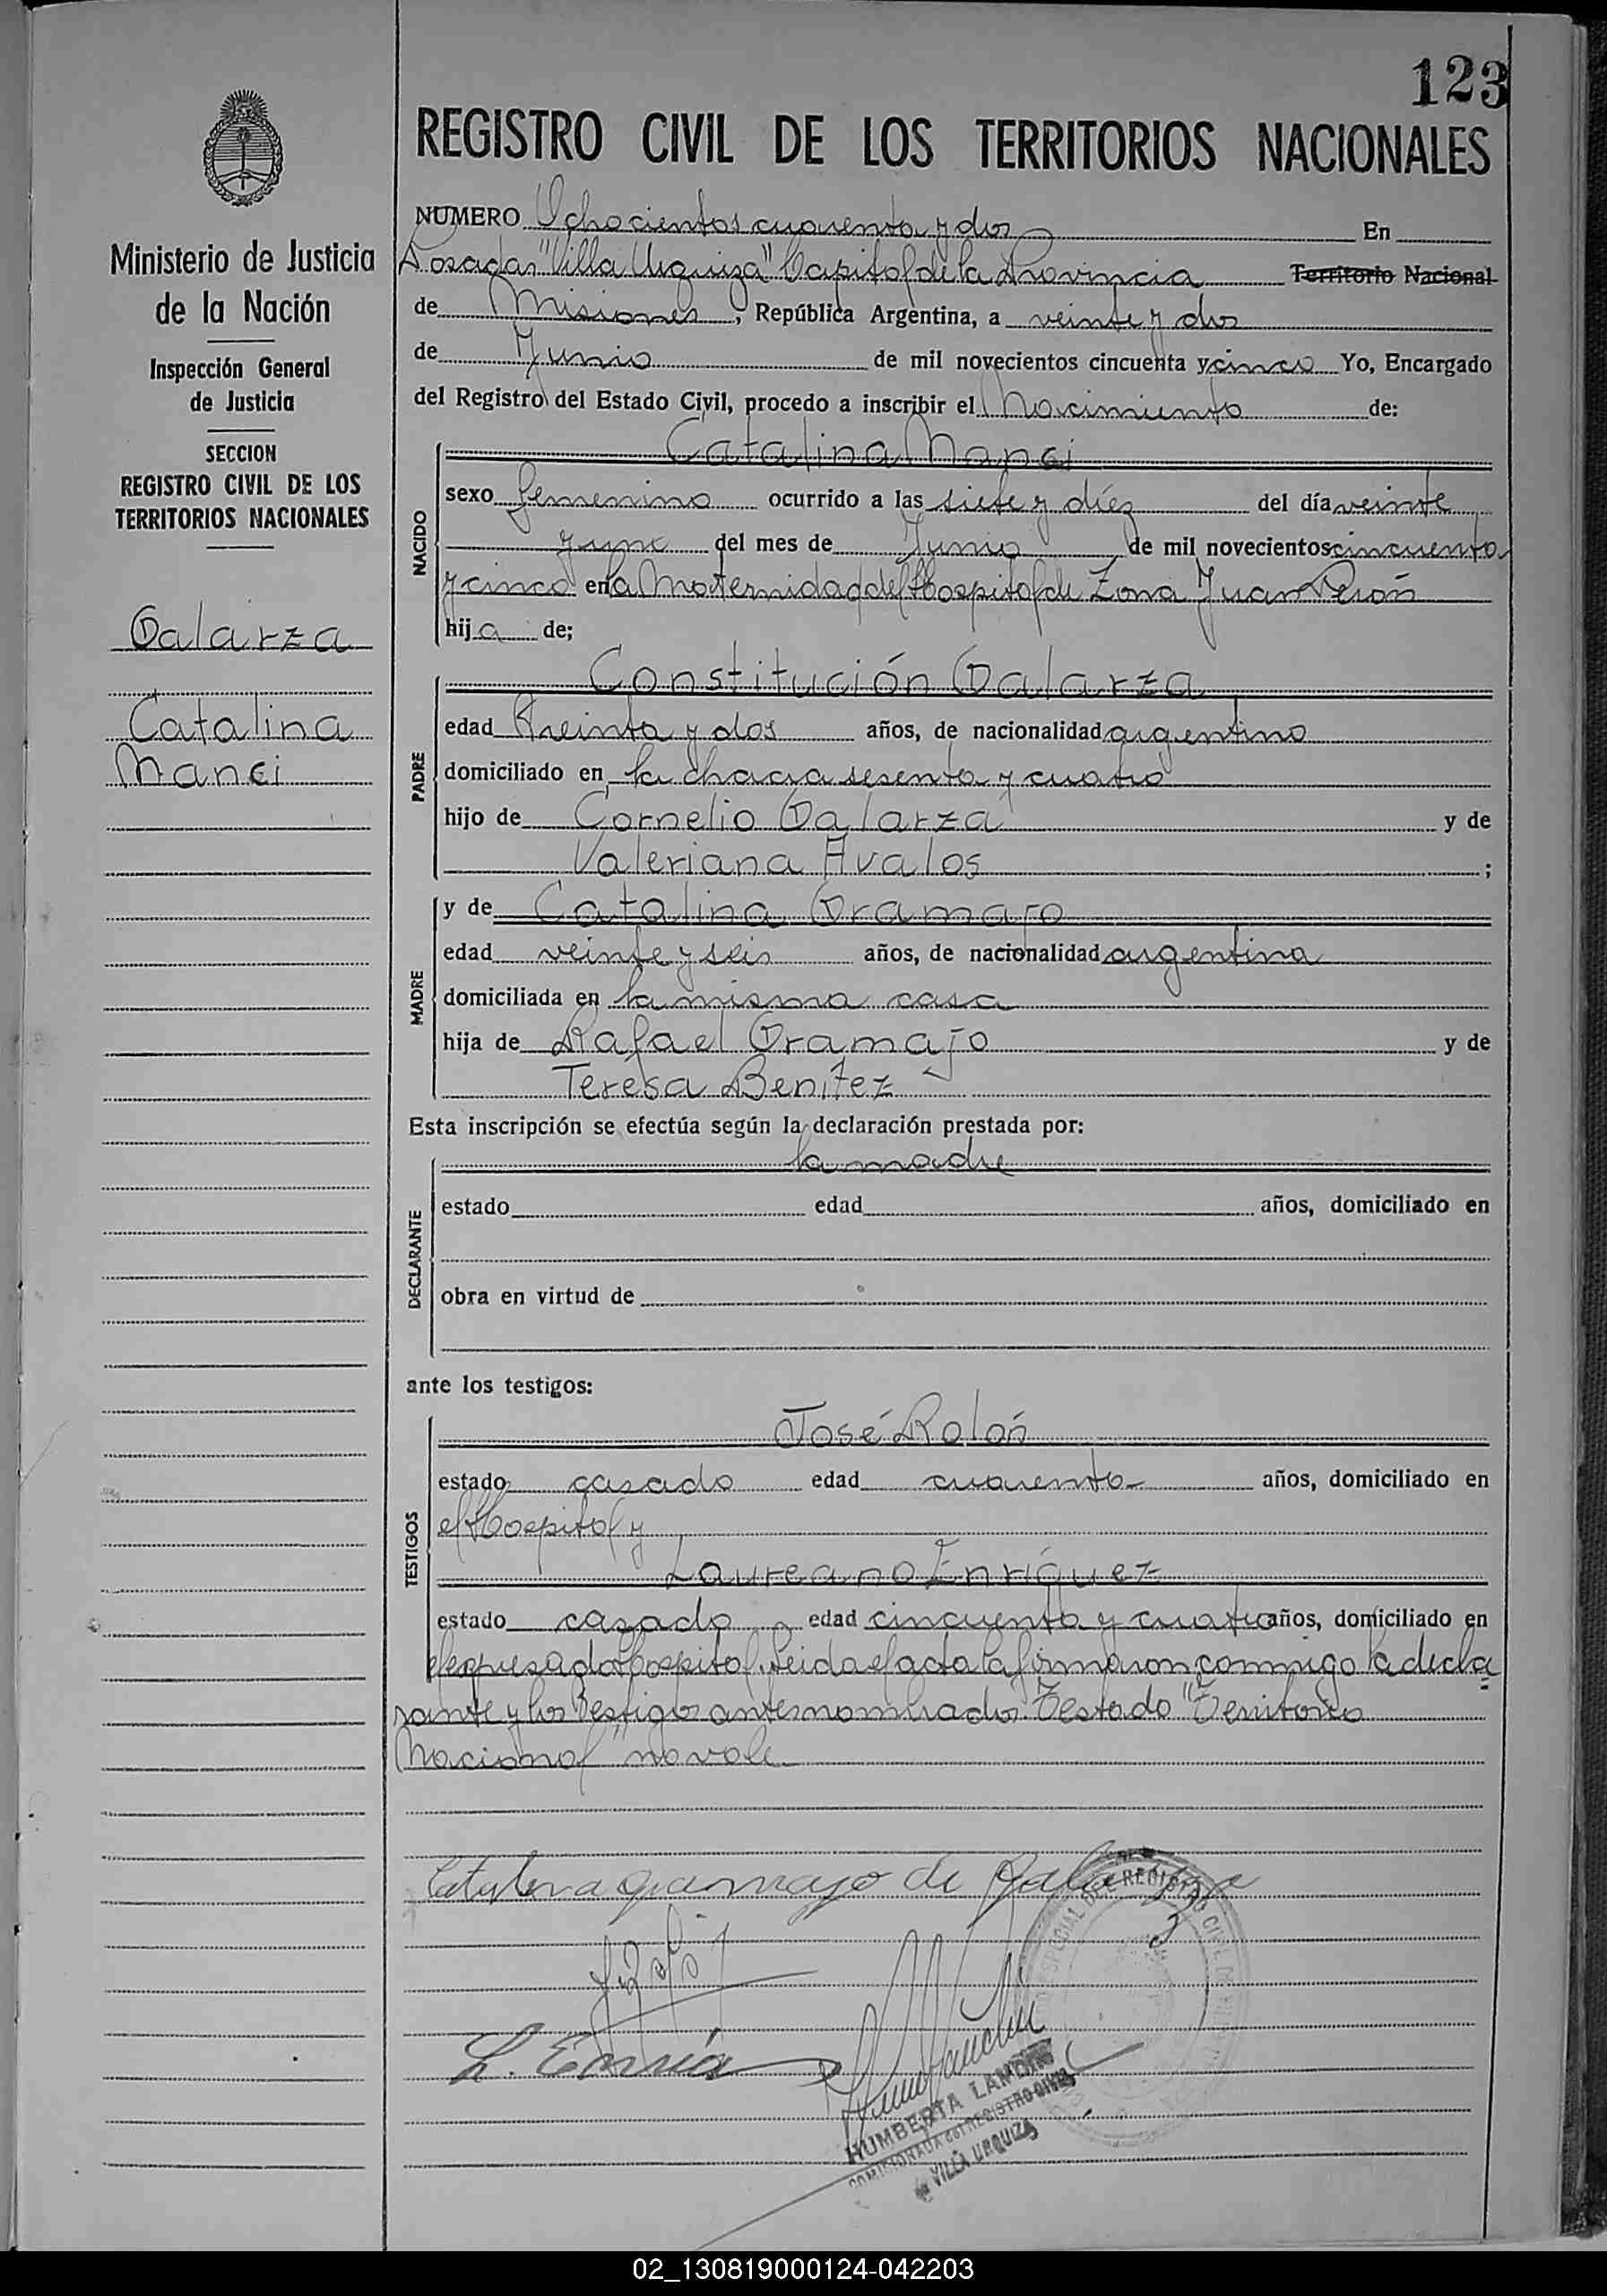 123
REGISTRO CIVIL DE LOS TERRITORIOS NACIONALES
Ministerio de Justicia
de la Nación
Inspección General
de Justicia
SECCION
REGISTRO CIVIL DE LOS
TERRITORIOS NACIONALES
Galarza
Catalina
Nanci
NUMERO Ochocientos cuarenta y dos En
Posadas "Villa Urquiza" Capital de la Provincia Territorio Nacional
de Misiones, República Argentina, a veinte y dos
de Junio de mil novecientos cincuenta y cinco Yo, Encargado
del Registro del Estado Civil, procedo a inscribir el Nacimiento de:
NACIDO
Catalina Nanci
sexo femenino ocurrido a las siete y díez del día veinte
y uno del mes de Junio de mil novecientos cincuenta
y cinco en la Maternidad del Hospital de Zona Juan Perón
hija de;
PADRE
Constitución Galarza
edad treinta y dos años, de nacionalidad argentino
domiciliado en la chacra sesenta y cuatro
hijo de Cornelio Galarza y de
Valeriana Avalos ;
MADRE
y de Catalina Gramajo
edad veinte y seis años, de nacionalidad argentina
domiciliada en la misma casa
hija de Rafael Gramajo y de
Teresa Benítez
Esta inscripción se efectúa según la declaración prestada por:
DECLARANTE
la madre
estado edad años, domiciliado en
obra en virtud de
ante los testigos:
TESTIGOS
José Rolón
estado casado edad cuarenta años, domiciliado en
el Hospital y
Laureano Enríquez
estado casado edad cincuenta y cuatro años, domiciliado en
el expresado Hospital. Leida el acta la firmaron conmigo la decla=
rante y los testigos antes nombrados. Testado "Territorio
Nacional" no vale
Catalina gramajo de Galarza
L. Enría
HUMBERTA
COMISIONADA del REGISTRO CIVIL
VILLA URQUIZA
02_130819000124-042203